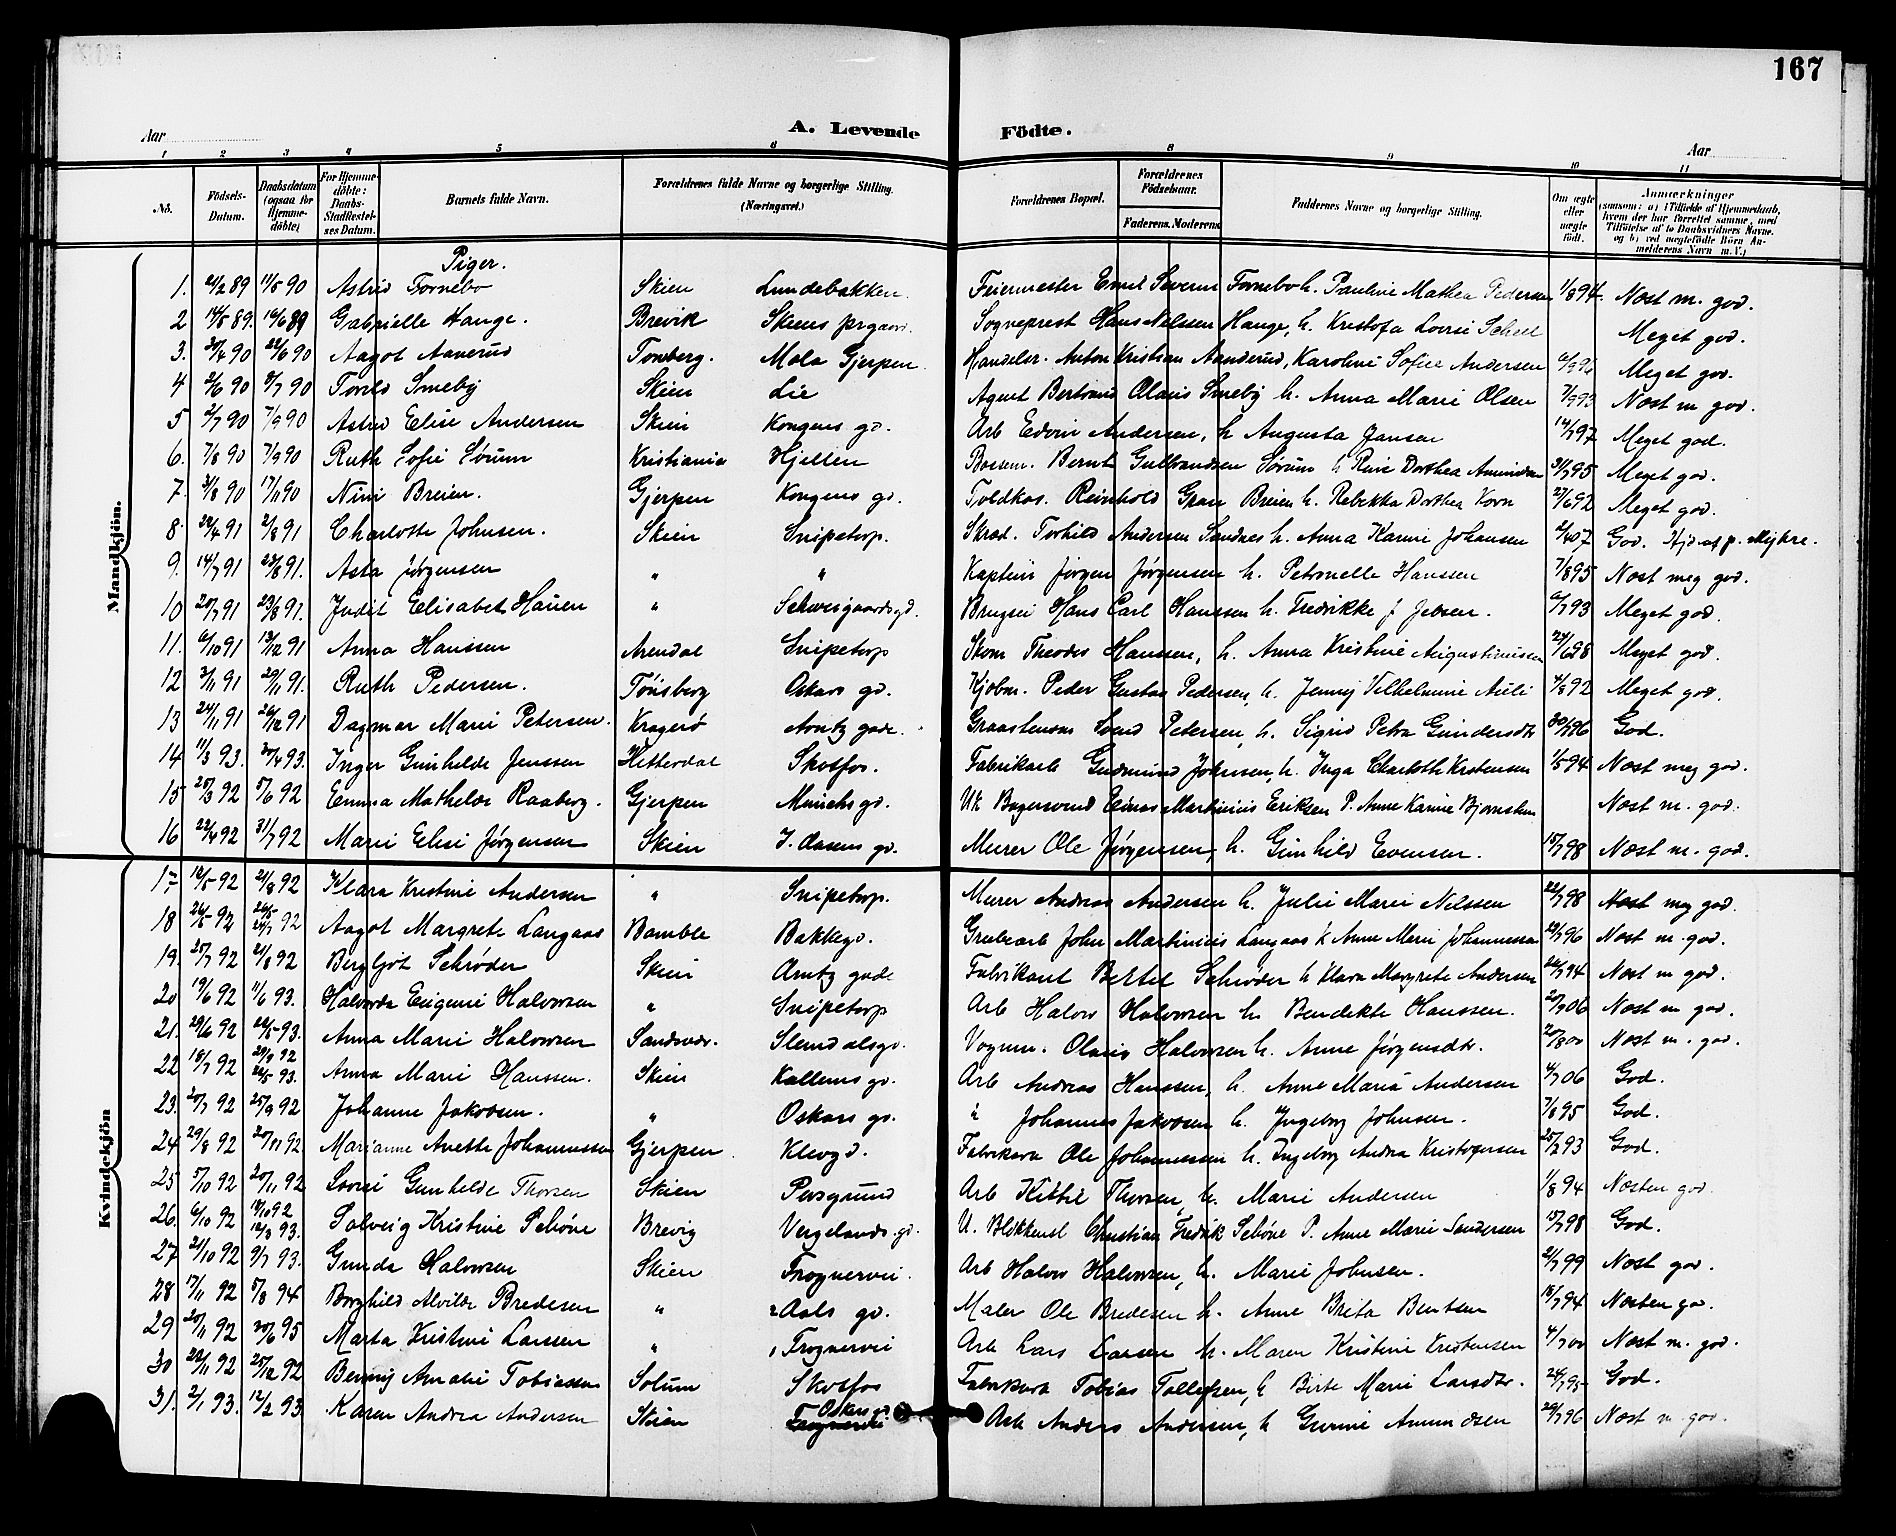 167
Aar
A. Levende Födte.
Aar
1 2 3 4 5 6 8 9 10 11
Nö.
Födsels-Datum.
Daabsdatum (ogsaa for Hjemme-döbte)
For Hjemme-döbte: Daabs-Stadfæstel-ses Datum.
Barnets fulde Navn.
Forældrenes fulde Navne og borgerlige Stilling. (Næringsvei.)
Forældrenes Bopæl.
Forældrenes Födselsaar.
Faderens. Moderens.
Faddernes Navne og borgerlige Stilling.
Om ægte eller uægte födt.
Anmærkninger (saasom: a) i Tilfælde af Hjemmedaab, hvem der har forrettet samme, med Tilföielse af to Daabsvidners Navne. og b) ved uægtefödte Börn An-melderens Navn m.V.)
Mandkjön.
Kvindekjön
Piger.
1. 24/2 89 11/5 90 Astrid Tornebo Skien Lundebakken Feiermester Emil Severin Tornebo h. Pauline Mathea Pedersen 1/8 94. Næst m. god.
2 14/5 89. 16/6 89 Gabrielle Hauge. Brevik Skiens prgaard. Sogneprest Hans Nilssen Hauge, h. Kristofa Lovise Scheel Meget god.
3. 30/4 90 22/6 90 Aagot Aanerud Tønsberg. Mæla Gjerpen. Handelsr. Anton Kristian Aanderud, Karoline Sofie Andersen Meget god.
4 2/6 90 2/7 90 Torild Smeby Skien Lie Agent Bertrand Olaus Smeby h. Anna Marie Olsen 7/9 93 Næst m god.
5 2/7 90 7/9 90 Astrid Elise Andersen Skien Kongens gd. Arb Edvin Andersen, h Augusta Jansen 14/7 97 Meget god.
6. 7/8 90 7/9 90 Ruth Sofie Sørum Kristiania Hjellen Bernt Gulbrandsen Sørum h Rine Dorthea 31/7 95 Meget god.
7. 3/8 90 17/11 90 Nini Breien. Gjerpen Kongens gd. Toldkas. Reinhold Gran Breien h. Rebekka Dorthea Korn 27/6 92 Meget god.
8. 22/4 91 2/8 91 Charlotte Johnsen. Skien Snipetorp. Skræd. Torkild Andersen Sandnes h. Anna Karine Johansen 2/4 07 God.
9. 14/7 91 23/8 91. Asta Jørgensen " " Kaptein Jørgen Jørgensen h. Petronelle Hanssen 7/8 95 Næst meg god.
10 20/7 91 23/8 91. Judit Elisabet Hansen " Schweigaardsgd. Hans Carl Hanssen h. Fredrikke J Jebsen. 6/7 93 Meget god.
11. 6/10 91 13/12 91 Anna Hanssen Arendal Snipetorp Skom Theodor Hanssen, h. Anna Kristine Augustinussen 24/6 98 Meget god.
12 3/11 91 29/11 91. Ruth Pedersen. Tönsberg Oskars gd. Kjøbm. Peder Gustav Pedersen, h. Jenny Vilhelmine 4/8 92 Meget god.
13 24/11 91 26/12 91 Dagmar Marie Petersen. Kragerö Arntz gade. Svend Petersen, h. Sigrid Petra Gundersdtr 30/7 96 God.
14 11/3 93. 30/4 93. Inger Gunhilde Jenssen Hitterdal Skotfos. Fabrikarb Gudmund Johnsen, h. Inga Charlotte Kristensen 1/5 94 Næst meg god.
15 25/3 92 5/6 92 Emma Mathilde Raaberg. Gjerpen Munchs gd. Uk Bagersvend Einar Martinius Eriksen P. Anne Karine Bjørnsten Næst m. god.
16 22/4 92 31/7 92 Marie Elise Jørgensen Skien I. Aasens gd. Murer Ole Jørgensen, h. Gunhild Evensen. 15/7 98 Næst m. god.
17 12/5 92 21/8 92 Klara Kristine Andersen " Snipetorp. Murer Andreas Andersen h. Julie Marie Nilssen 22/7 98 Næst meg god.
18 26/5 92 26/5 24/7 92 Aagot Margrete Langaas Bamble Bakkegd. Grubearb John Martinius Langaas h Anne Marie Johannessen 22/7 96 Næst m. god.
19. 25/7 92 21/8 92 Bergljot Schrøder Skien Arntz gade Fabrikant Bertel Schrøder h Klara Margrete Andersen 22/7 94 Næst m god.
20 19/6 92 11/6 93. Halvorda Eugenie Halvorsen " Snipetorp Arb Halvor Halvorsen h. Bendikte Hanssen. 2/9 06 Næst m god.
21. 29/6 92 22/5 93. Anna Marie Halvorsen Sandsvær. Slemdalsgd. Vognm. Olaus Halvorsen h. Anne Jørgensdtr. 20/8 00 Næst m. god.
22 18/7 92 29/9 92 22/5 93. Anna Marie Hanssen. Skien Kallems gd. Arb Andreas Hanssen, h. Anne Maria Andersen 4/7 06 God.
23. 20/7 92 25/9 92 Johanne Jakobsen. " Oskars gd. " Johannes Jakobsen h. Ingeborg Johnsen. 7/8 95 God.
24 29/8 92 20/11 92 Marianne Anette Johannessen Gjerpen Klevgd. Fabrikarb Ole Johannessen h. Ingeborg Andrea Kristofersen 25/2 93 God.
25 5/10 92 20/11 92 Lovise Gunhilde Thorsen Skien Porsgrund Arb Kittil Thorsen, h. Marie Andersen 1/8 94 Næsten god
26. 6/10 92 12/10 92 12/3 93. Solveig Kristine Schöne Brevig Vergelands. gd. U. Blikkensl Christian Fredrik Schöne P. Anne Marie Sandersen 15/7 98 God.
27 21/10 92 9/7 93. Gunda Halvorsen Skien Frognervei. Arb Halvor Halvorsen, h. Marie Johnsen. 21/7 99 Næst god.
28 17/11 92 5/8 94 Borghild Alvilde Bredesen " Aals gd. Maler Ole Bredesen h. Anne Brita Bentsen 18/7 94 Næsten god.
29 20/11 92 30/6 95 Marta Kristine Larssen " Frognervei Arb Lars Larsen h. Maren Kristine Kristensen 4/7 00 Næst m. god.
30 22/11 92 25/12 92 Benny Amalie Tobiassen Solum Skotfos Fabrikarb Tobias Tollefsen, h Birte Marie Larsdtr. 24/7 95 God.
31. 2/1 93. 12/2 93 Karen Andrea Andersen Skien Oskars gd. Frognervei Arb Anders Andersen, h Gurine Amundsen 22/7 96 Næst m. god.